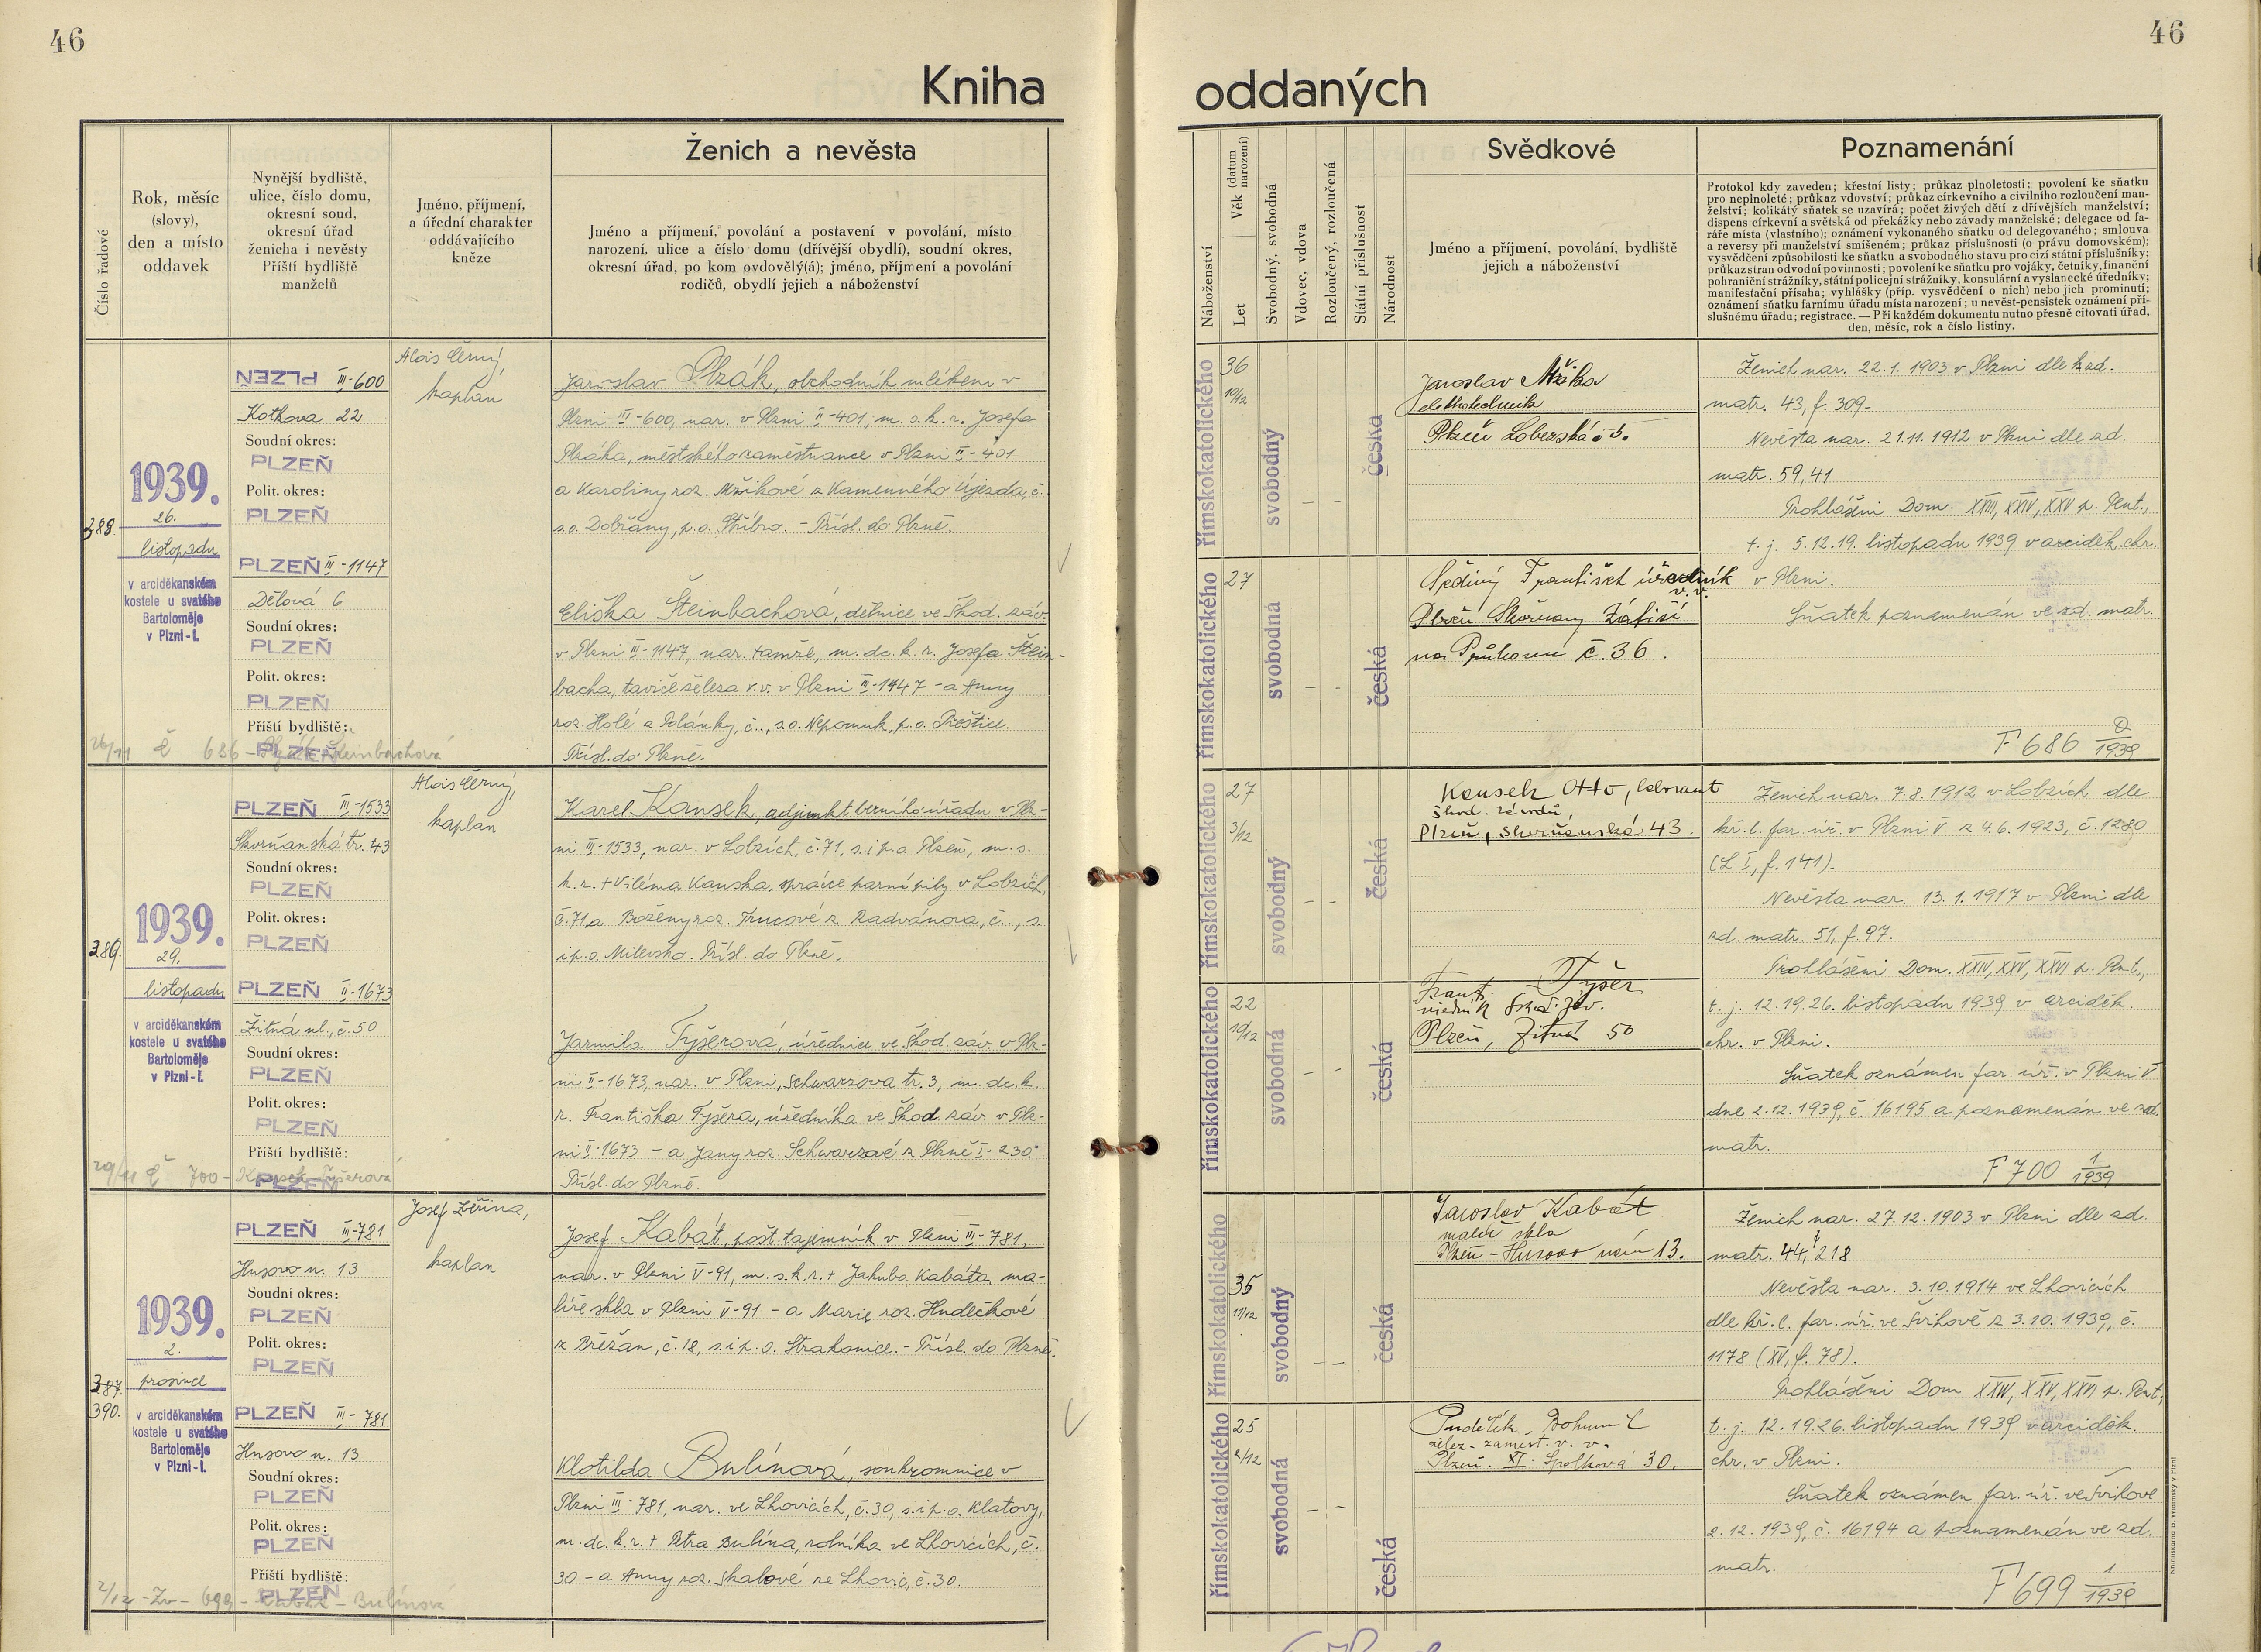 46
46
Kniha
oddaných
Číslo řadové
Rok, měsíc
(slovy),
den a místo
oddavek
Nynější bydliště,
ulice, číslo domu,
okresní soud,
okresní úřad
ženicha i nevěsty
Příští bydliště
manželů
Jméno, příjmení,
a úřední charakter
oddávajícího
kněze
Ženich a nevěsta
Jméno a příjmení, povolání a postavení v povolání, místo
narození, ulice a číslo domu (dřívější obydlí), soudní okres,
okresní úřad, po kom ovdovělý(á); jméno, příjmení a povolání
rodičů, obydlí jejich a náboženství
Náboženství
Věk (datum narození)
Let
Svobodný, svobodná
Vdovec, vdova
Rozloučený, rozloučená
Státní příslušnost
Národnost
Svědkové
Jméno a příjmení, povolání, bydliště
jejich a náboženství
Poznamenání
Protokol kdy zaveden; křestní listy; průkaz plnoletosti; povolení ke sňatku
pro neplnoleté; průkaz vdovství; průkaz církevního a civilního rozloučení man-
želství; kolikátý sňatek se uzavírá; počet živých dětí z dřívějších manželství;
dispens církevní a světská od překážky nebo závady manželské; delegace od fa-
ráře místa (vlastního); oznámení vykonaného sňatku od delegovaného; smlouva
a reversy při manželství smíšeném; průkaz příslušnosti (o právu domovském);
vysvědčení způsobilosti ke sňatku a svobodného stavu pro cizí státní příslušníky;
průkaz stran odvodní povinnosti; povolení ke sňatku pro vojáky, četníky, finanční
pohraniční strážníky, státní policejní strážníky, konsulární a vyslanecké úředníky;
manifestační přísaha; vyhlášky (příp. vysvědčení o nich) nebo jich prominutí;
oznámení sňatku farnímu úřadu místa narození; u nevěst-pensistek oznámení pří-
slušnému úřadu; registrace. — Při každém dokumentu nutno přesně citovati úřad,
den, měsíc, rok a číslo listiny.
388.
1939.
26.
listopadu
v arciděkanském
kostele u svatého
Bartoloměje
v Plzni-I.
PLZEŇ III-600
Kotkova 22
Soudní okres:
PLZEŇ
Polit. okres:
PLZEŇ
PLZEŇ III-1147
Dělová 6
Soudní okres:
PLZEŇ
Polit. okres:
PLZEŇ
Příští bydliště:
PLZEŇ
26/11 č 686 - Steinbachová
Alois Černý,
kaplan
Jaroslav Plzák, obchodník mlékem v
Plzni III-600, nar. v Plzni II-401, m. s. k. r. Josefa
Plzáka, městského zaměstnance v Plzni II-401
a Karoliny roz. Mžikové z Kamenného Újezda, č.
s.o. Dobřany, p.o. Stříbro. - Přísl. do Plzně.
Eliška Šteinbachová, dělnice ve Škod. záv.
v Plzni III-1147, nar. tamže, m. dc. k. r. Josefa Štein-
bacha, taviče železa v.v. v Plzni III-1147 - a Anny
roz. Holé z Polánky, č.., s.o. Nepomuk, p.o. Přeštice.
Přísl. do Plzně.
římskokatolického
36
10/12
svobodný
- -
česká
římskokatolického
27
svobodná
- -
česká
Jaroslav Mžika
elektrotechnik
Plzeň Lobezská č 5.
Šedivý František úředník
v. v.
Plzeň Skvrňany Zátiší
na Průhonu č. 36.
Ženich nar. 22.1.1903 v Plzni dle zad.
matr. 43, f. 309.
Nevěsta nar. 21.11.1912 v Plzni dle zd.
matr. 59, 41
Prohlášeni Dom. XXIII, XXIV, XXV p. Pent.,
t. j. 5.12.19. listopadu 1939 v arciděk. chr.
v Plzni.
Sňatek poznamenán ve zd. matr.
F 686 1939
389.
1939.
29.
listopadu
v arciděkanském
kostele u svatého
Bartoloměje
v Plzni-I.
PLZEŇ III-1533
Skvrňanská tř. 43
Soudní okres:
PLZEŇ
Polit. okres:
PLZEŇ
PLZEŇ II-1673
Žitná ul., č. 50
Soudní okres:
PLZEŇ
Polit. okres:
PLZEŇ
Příští bydliště:
PLZEŇ
29/11 č 700 - Kousek - Tyšerová
Alois Černý,
kaplan
Karel Kousek, adjunkt berního úřadu v Plz-
ni III-1533, nar. v Lobzích, č. 71, s. i p. o. Plzeň, m. s.
k. r. + Viléma Kouska, správce parní pily v Lobzích,
č. 71, a Boženy roz. Trucové z Radvánova, č.., s.
i p. o. Milevsko. Přísl. do Plzně.
Jarmila Tyšerová, úřednice ve Škod. záv. v Plz-
ni II-1673, nar. v Plzni, Schwarzova tř. 3, m. dc. k.
r. Františka Tyšera, úředníka ve Škod. záv. v Plz-
ni II-1673 - a Jany roz. Schwarzové z Plzně I-230.
Přísl. do Plzně.
římskokatolického
27
3/12
svobodný
- -
česká
římskokatolického
22
10/12
svobodná
- -
česká
Kousek Otto, laborant
škod. závodů,
Plzeň, Skvrňanská 43.
Frant. Tyšer
úředník Škod. záv.
Plzeň, Žitná 50
Ženich nar. 7.8.1912 v Lobzích dle
kř. l. far. úř. v Plzni V z 4.6.1923, č. 1280
(L I, f. 141).
Nevěsta nar. 13.1.1917 v Plzni dle
zd. matr. 51, f. 97.
Prohlášeni Dom. XXIV, XXV, XXVI p. Pent.,
t. j. 12.19.26. listopadu 1939 v arciděk.
chr. v Plzni.
Sňatek oznámen far. úř. v Plzni V
dne 2.12.1939, č. 16195 a poznamenán ve zd.
matr.
F 700 1/1939
387.
390.
1939.
2.
prosince
v arciděkanském
kostele u svatého
Bartoloměje
v Plzni-I.
PLZEŇ III-781
Husovo n. 13
Soudní okres:
PLZEŇ
Polit. okres:
PLZEŇ
PLZEŇ III-781
Husovo n. 13
Soudní okres:
PLZEŇ
Polit. okres:
PLZEŇ
Příští bydliště:
PLZEŇ
2/12 - Zv - 699 - Kabát - Bulínová
Josef Zvěřina,
kaplan
Josef Kabát, pošt. tajemník v Plzni III-781,
nar. v Plzni V-91, m. s. k. r. + Jakuba Kabáta, ma-
líře skla v Plzni V-91 - a Marie roz. Hudečkové
z Břežan, č. 18, s. i p. o. Strakonice. - Přísl. do Plzně.
Klotilda Bulínová, soukromnice v
Plzni III-781, nar. ve Lhovicích, č. 30, s. i p. o. Klatovy,
m. dc. k. r. + Petra Bulína, rolníka ve Lhovicích, č.
30 - a Anny roz. Skalové ze Lhovic, č. 30.
římskokatolického
35
11/12
svobodný
- -
česká
římskokatolického
25
2/12
svobodná
- -
česká
Jaroslav Kabát
malíř skla
Plzeň - Husovo nám 13.
Bohumil
želez. zaměst. v. v.
Plzeň. XI Spolková 30.
Ženich nar. 27.12.1903 v Plzni dle zd.
matr. 44, f 218
Nevěsta nar. 3.10.1914 ve Lhovicích
dle kř. l. far. úř. ve Švihově z 3.10.1939, č.
1178 (XV, f. 78).
Prohlášeni Dom XXIV, XXV, XXVI p. Pent.,
t. j. 12.19.26. listopadu 1939 v arciděk.
chr. v Plzni.
Sňatek oznámen far. úř. ve Švihově
2.12.1939, č. 16194 a poznamenán ve zd.
matr.
F 699 1/1939